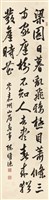 梁園日暮亂飛鴉極目蕭條三
兩家庭樹不知人去盡春來還
發舊時花